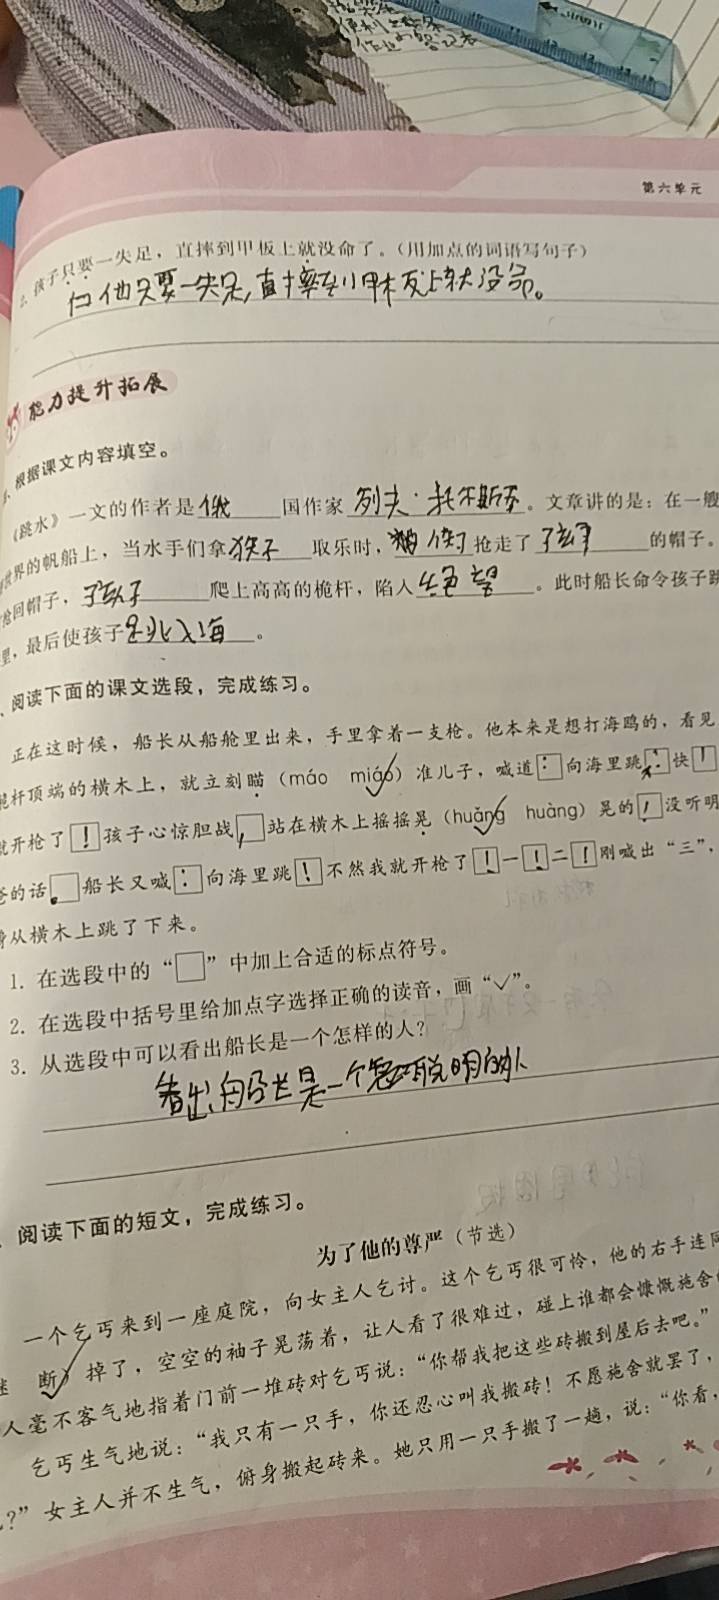 第六单元
2. 孩子只要一失足，直摔到甲板上就没命了。（用加点的词语写句子）
他只要一失足，直摔到甲板上就没命。
能力提升拓展
根据课文内容填空。
《跳水》一文的作者是俄国作家列夫·托尔斯泰。文章讲的是：在一艘
世界的帆船上，当水手们拿猴子取乐时，猴子抢走了孩子的帽子。
抢回帽子，孩子爬上高高的桅杆，陷入绝望。此时船长命令孩子跳
里，最后使孩子跳入海。
、阅读下面的课文选段，完成练习。
正在这时候，船长从船舱里出来，手里拿着一支枪。他本来是想打海鸥的，看见
桅杆顶端的横木上，就立刻瞄（máo miáo）准儿子，喊道：向海里跳快！
就开枪了！孩子心惊胆战，站在横木上摇摇晃（huǎng huàng）晃的！没听明
爸的话。船长又喊：向海里跳！不然我就开枪了！一！二！刚喊出“三”，
身从横木上跳了下来。
1. 在选段中的“□”中加上合适的标点符号。
2. 在选段中括号里给加点字选择正确的读音，画“√”。
3. 从选段中可以看出船长是一个怎样的人？
看出船长是一个聪明的人
、阅读下面的短文，完成练习。
为了他的尊严（节选）
一个乞丐来到一座庭院，向女主人乞讨。这个乞丐很可怜，他的右手连同
断）掉了，空空的袖子晃荡着，让人看了很难过，碰上谁都会慷慨施舍
人毫不客气地指着门前一堆砖对乞丐说：“你帮我把这些砖搬到屋后去吧。”
乞丐生气地说：“我只有一只手，你还忍心叫我搬砖！不愿施舍就罢了，
？”女主人并不生气，俯身搬起砖来。她只用一只手搬了一趟，说：“你看，